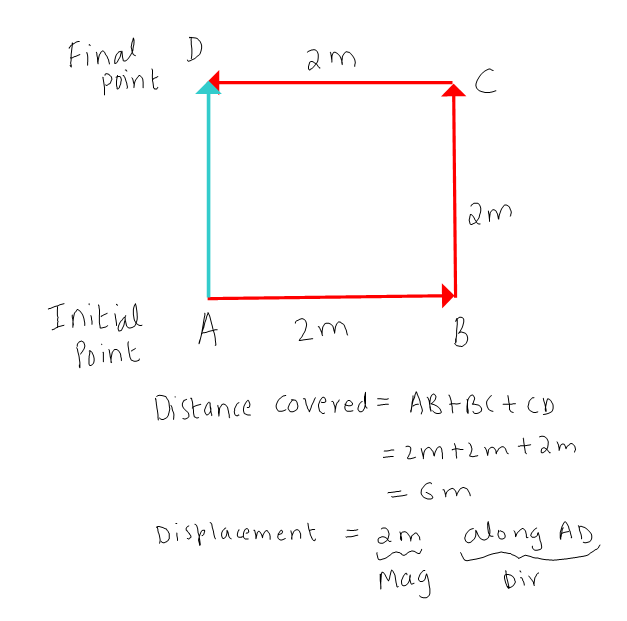 Final D 2m
Point C
2m
Initial A 2m B
Point
Distance Covered = AB+BC+CD
= 2m+2m+2m
= 6m
Displacement = 2m along AD
Mag Dir